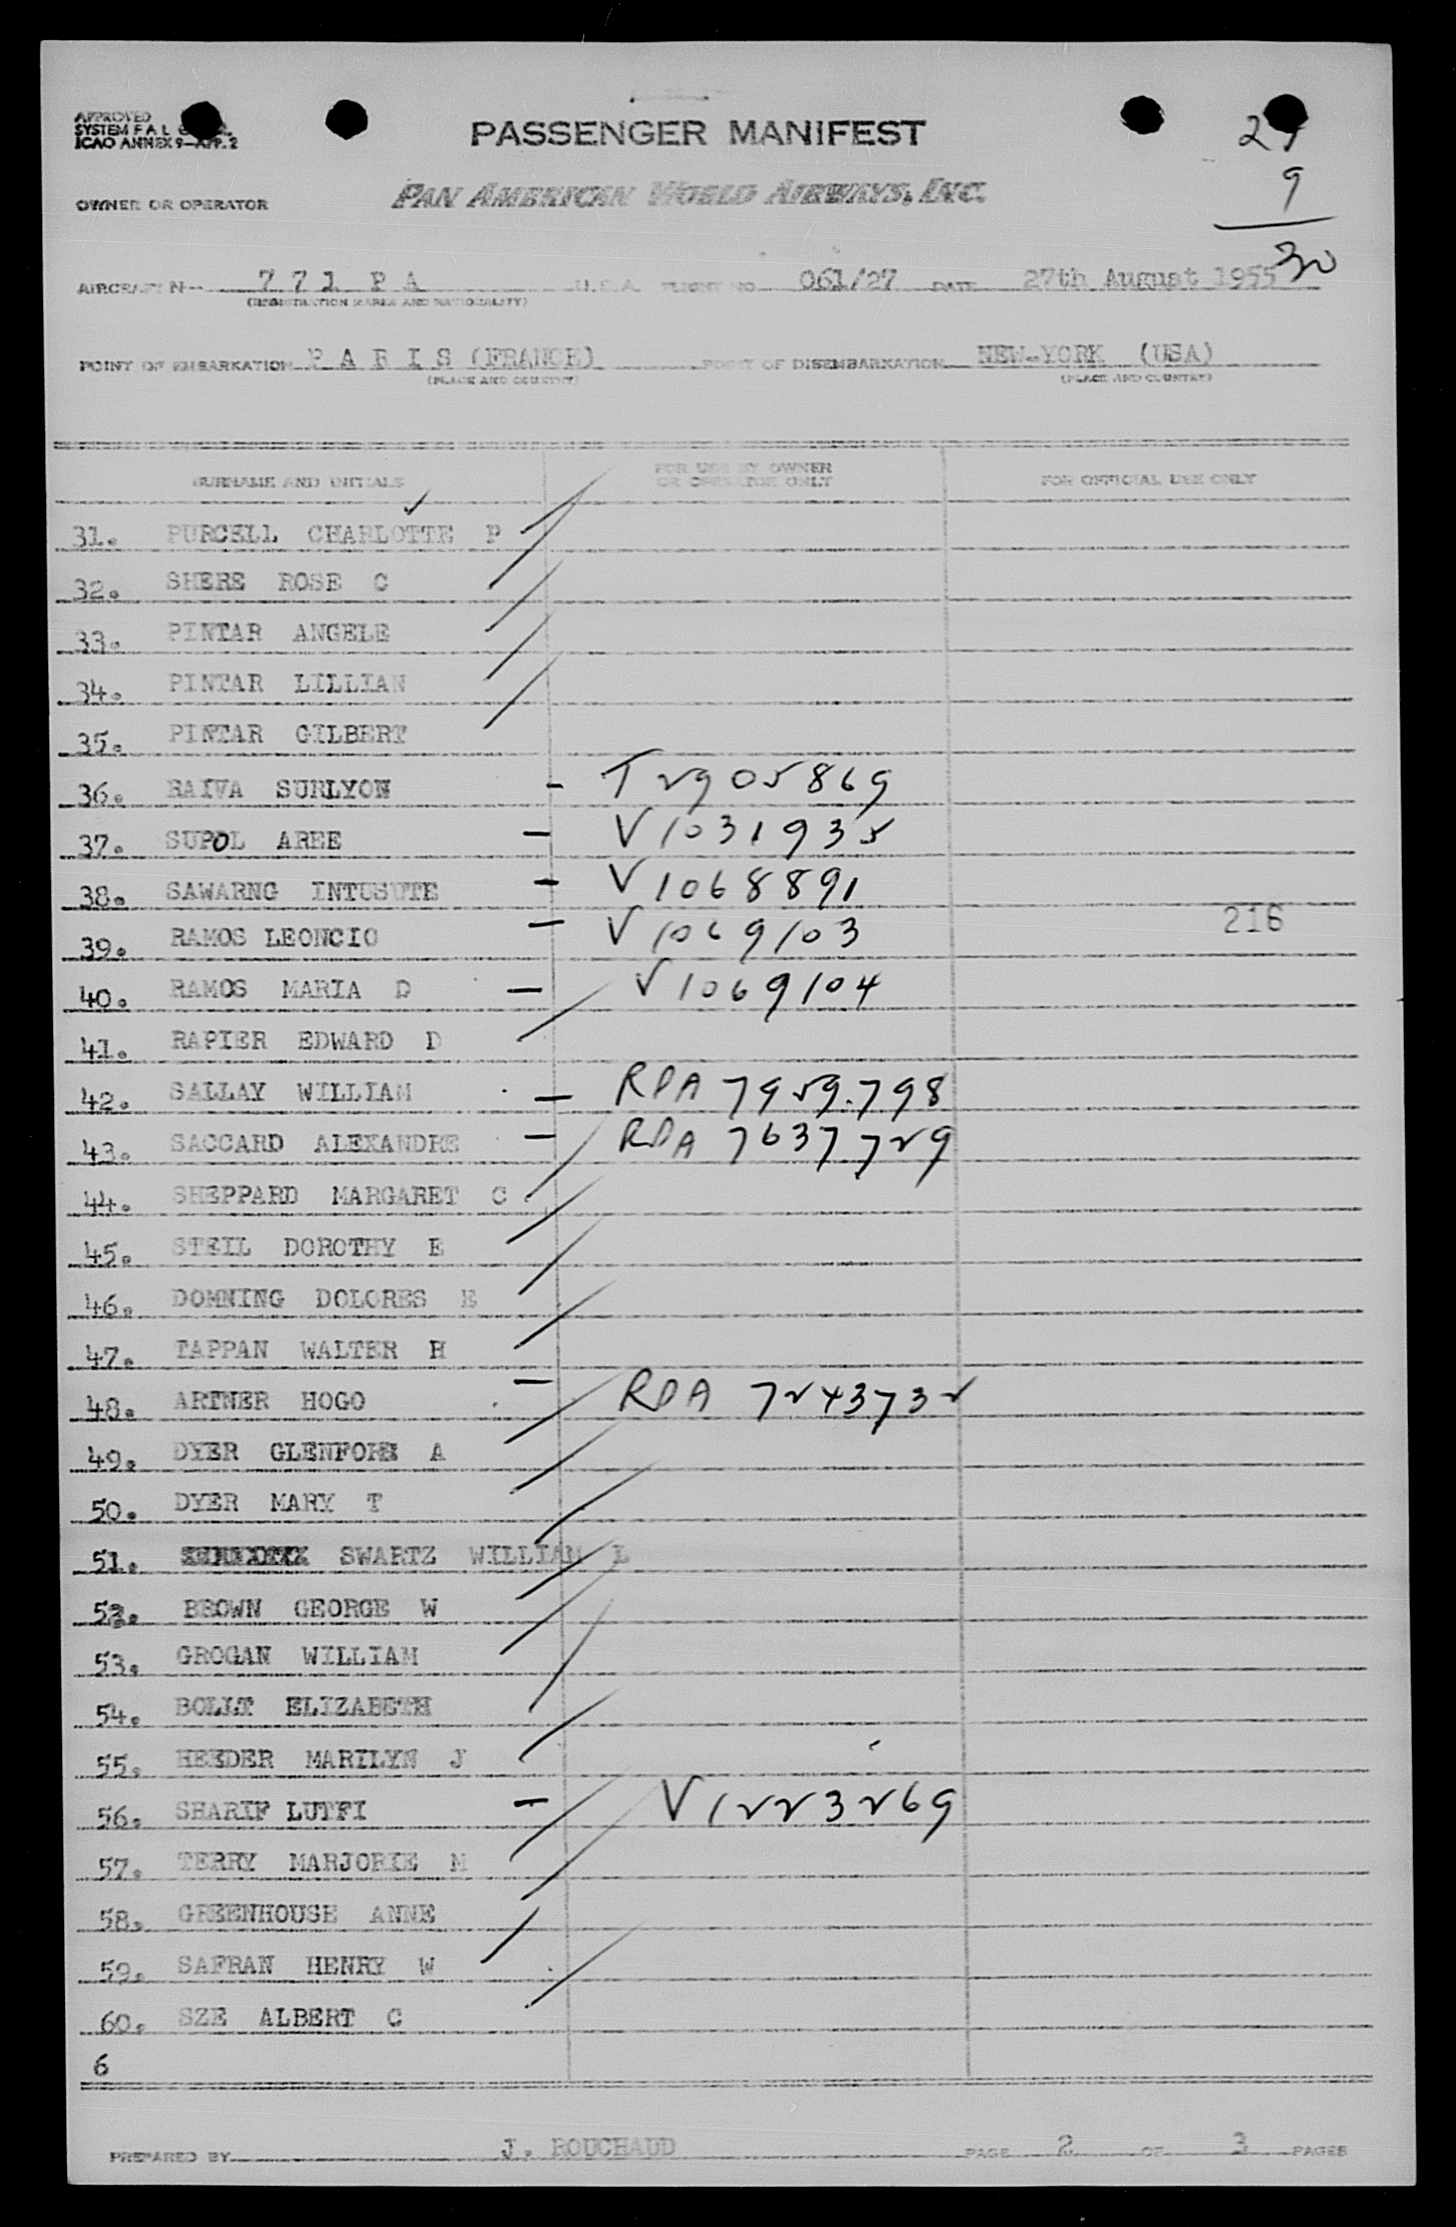 APPROVED
SYSTEM F A L
ICAO ANNEX 9—APP. 2
PASSENGER MANIFEST
9
30
OWNER OR OPERATOR PAN AMERICAN WORLD AIRWAYS, INC.
AIRCRAFT N— 7 7 1 P A U.S.A. FLIGHT NO. 061/27 DATE 27th August 1955
(REGISTRATION MARKS AND NATIONALITY)
POINT OF EMBARKATION P A R I S (FRANCE) POINT OF DISEMBARKATION NEW-YORK (USA)
(PLACE AND COUNTRY) (PLACE AND COUNTRY)
SURNAME AND INITIALS FOR USE BY OWNER OR OPERATOR ONLY FOR OFFICIAL USE ONLY
31. PURCELL CHARLOTTE P
32. SHERE ROSE C
33. PINTAR ANGELE
34. PINTAR LILLIAN
35. PINTAR GILBERT
36. RAIVA SURLYON — T2905869
37. SUPOL AREE — V1031935
38. SAWARNG INTUSUTE — V1068891
39. RAMOS LEONCIO — V1069103 216
40. RAMOS MARIA D — V1069104
41. RAPIER EDWARD D
42. SALLAY WILLIAM — RPA 7959798
43. SACCARD ALEXANDRE — RPA 7637729
44. SHEPPARD MARGARET C
45. STEIL DOROTHY E
46. DOMNING DOLORES E
47. TAPPAN WALTER H
48. ARTNER HOGO — RPA 7243732
49. DYER A
50. DYER MARY T
51. SWARTZ WILLIAM L
52. BROWN GEORGE W
53. GROGAN WILLIAM
54. BOLLT ELIZABETH
55. HEEDER MARILYN J
56. SHARIF LUTFI — V1223269
57. TERRY MARJORIE M
58. GREENHOUSE ANNE
59. SAFRAN HENRY W
60. SZE ALBERT C
6
PREPARED BY J. ROUCHAUD PAGE 2 OF 3 PAGES